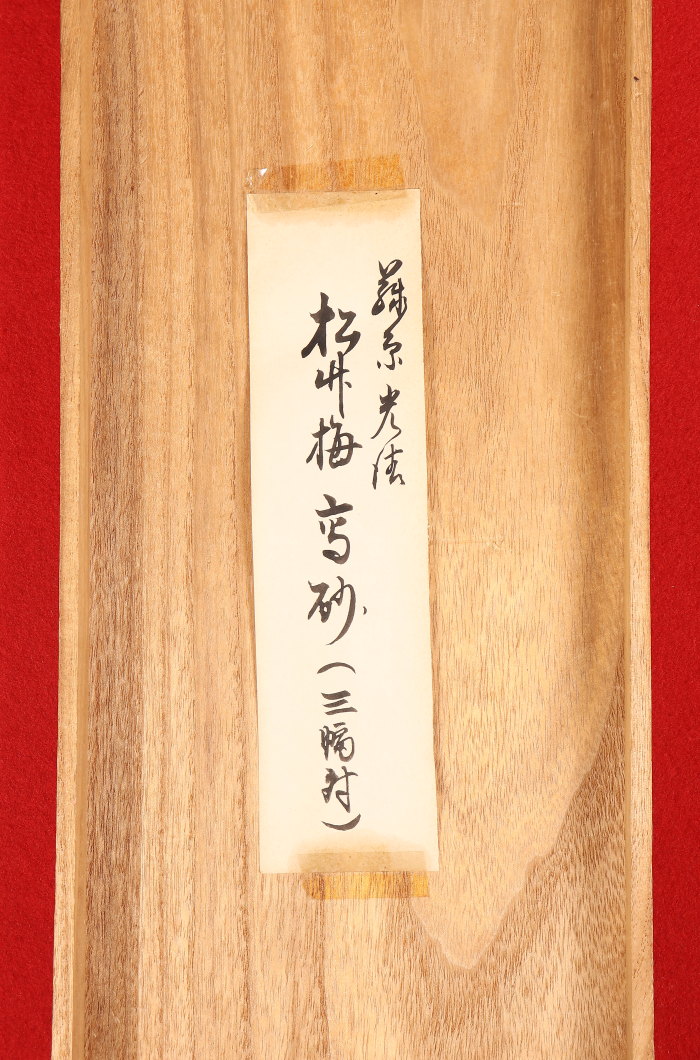 藤原光清
松竹梅 高砂（三幅対）